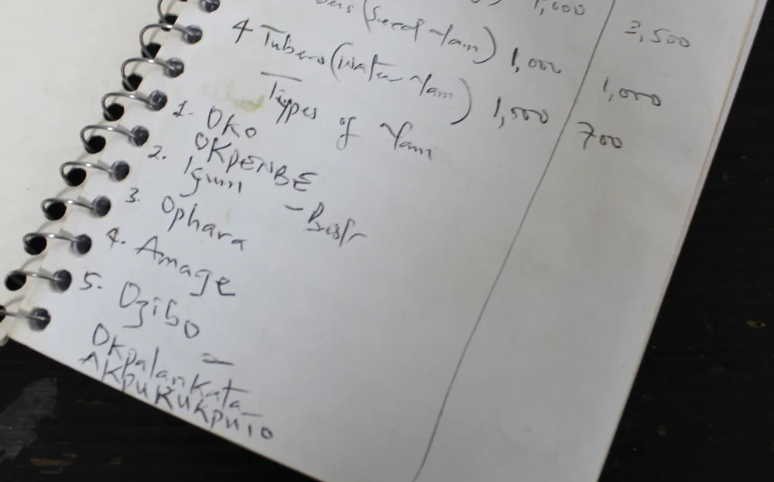 (Seed Yam) 1,000 3,500
4 Tubers (Water Yam) 1,000 1,000
Types of Yam 1,500 700
1. OKO
OKPENBE
2. Igum - Best
3. Ophara
4. Amage
5. Ozibo -
OKpalankata
AKPURUKPUTO